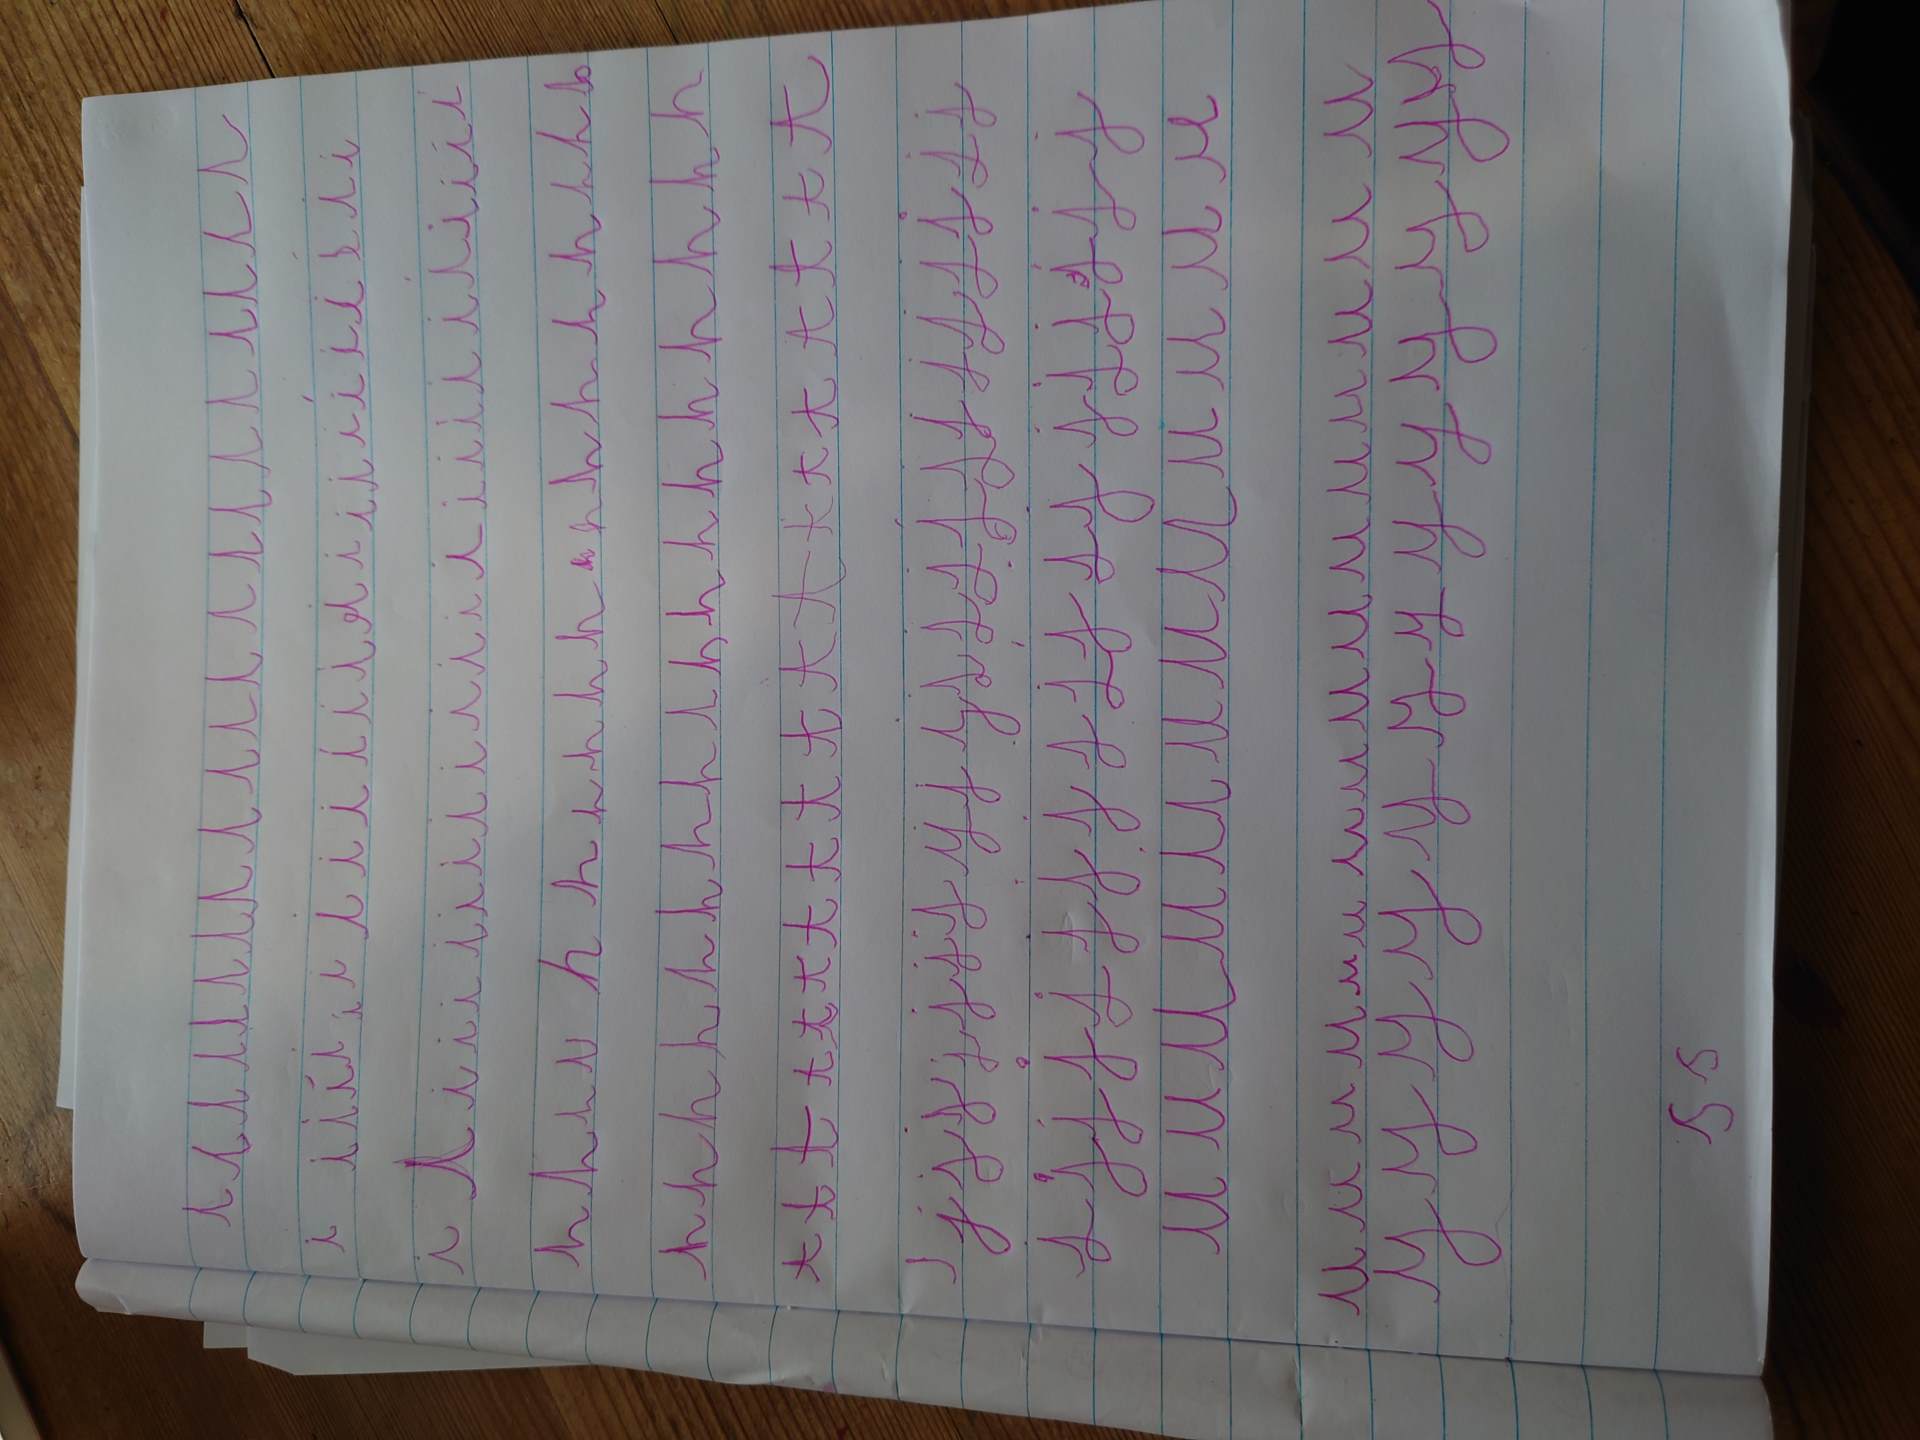 i i i i i i i i i i i i i i i i i i i i i i
i i i i i i i i i i i i i i i i i i i i i i
h h h h h h h h h h h h h h h h h h h h h
h h h h h h h h h h h h h h h h h h h h
t t t t t t t t t t t t t t t t t t t
j j j j j j j j j j j j j j j j j j j j
j j j j j j j j j j j j j j j j j
u u u u u u u u u u u u u u u
u u u u u u u u u u u u u u u u u
y y y y y y y y y y y y y
s s